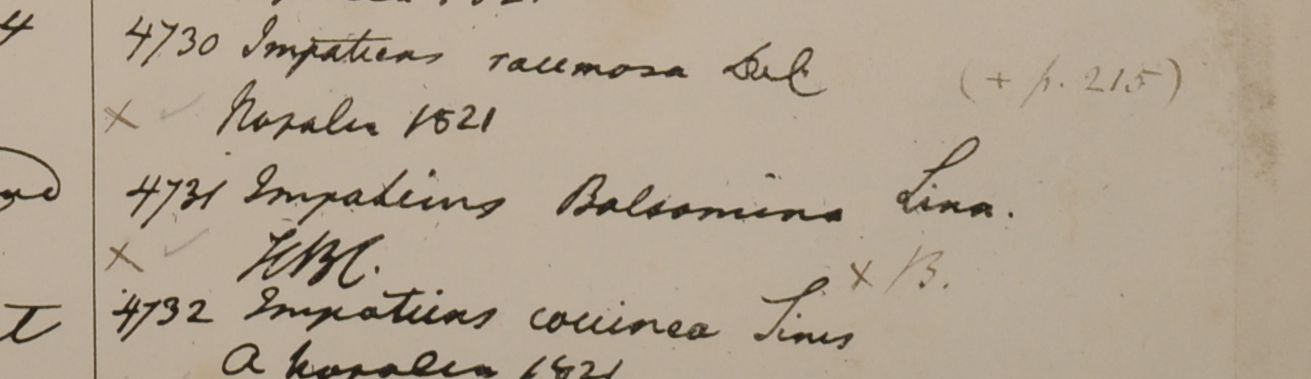 4
4730 Impatiens racemosa Del (+ p. 215)
× ✓ Napalia 1821
4731 Impatiens Balsamina Linn.
× ✓ HBC. × B.
4732 Impatiens coccinea Sims
A Napalia 1821